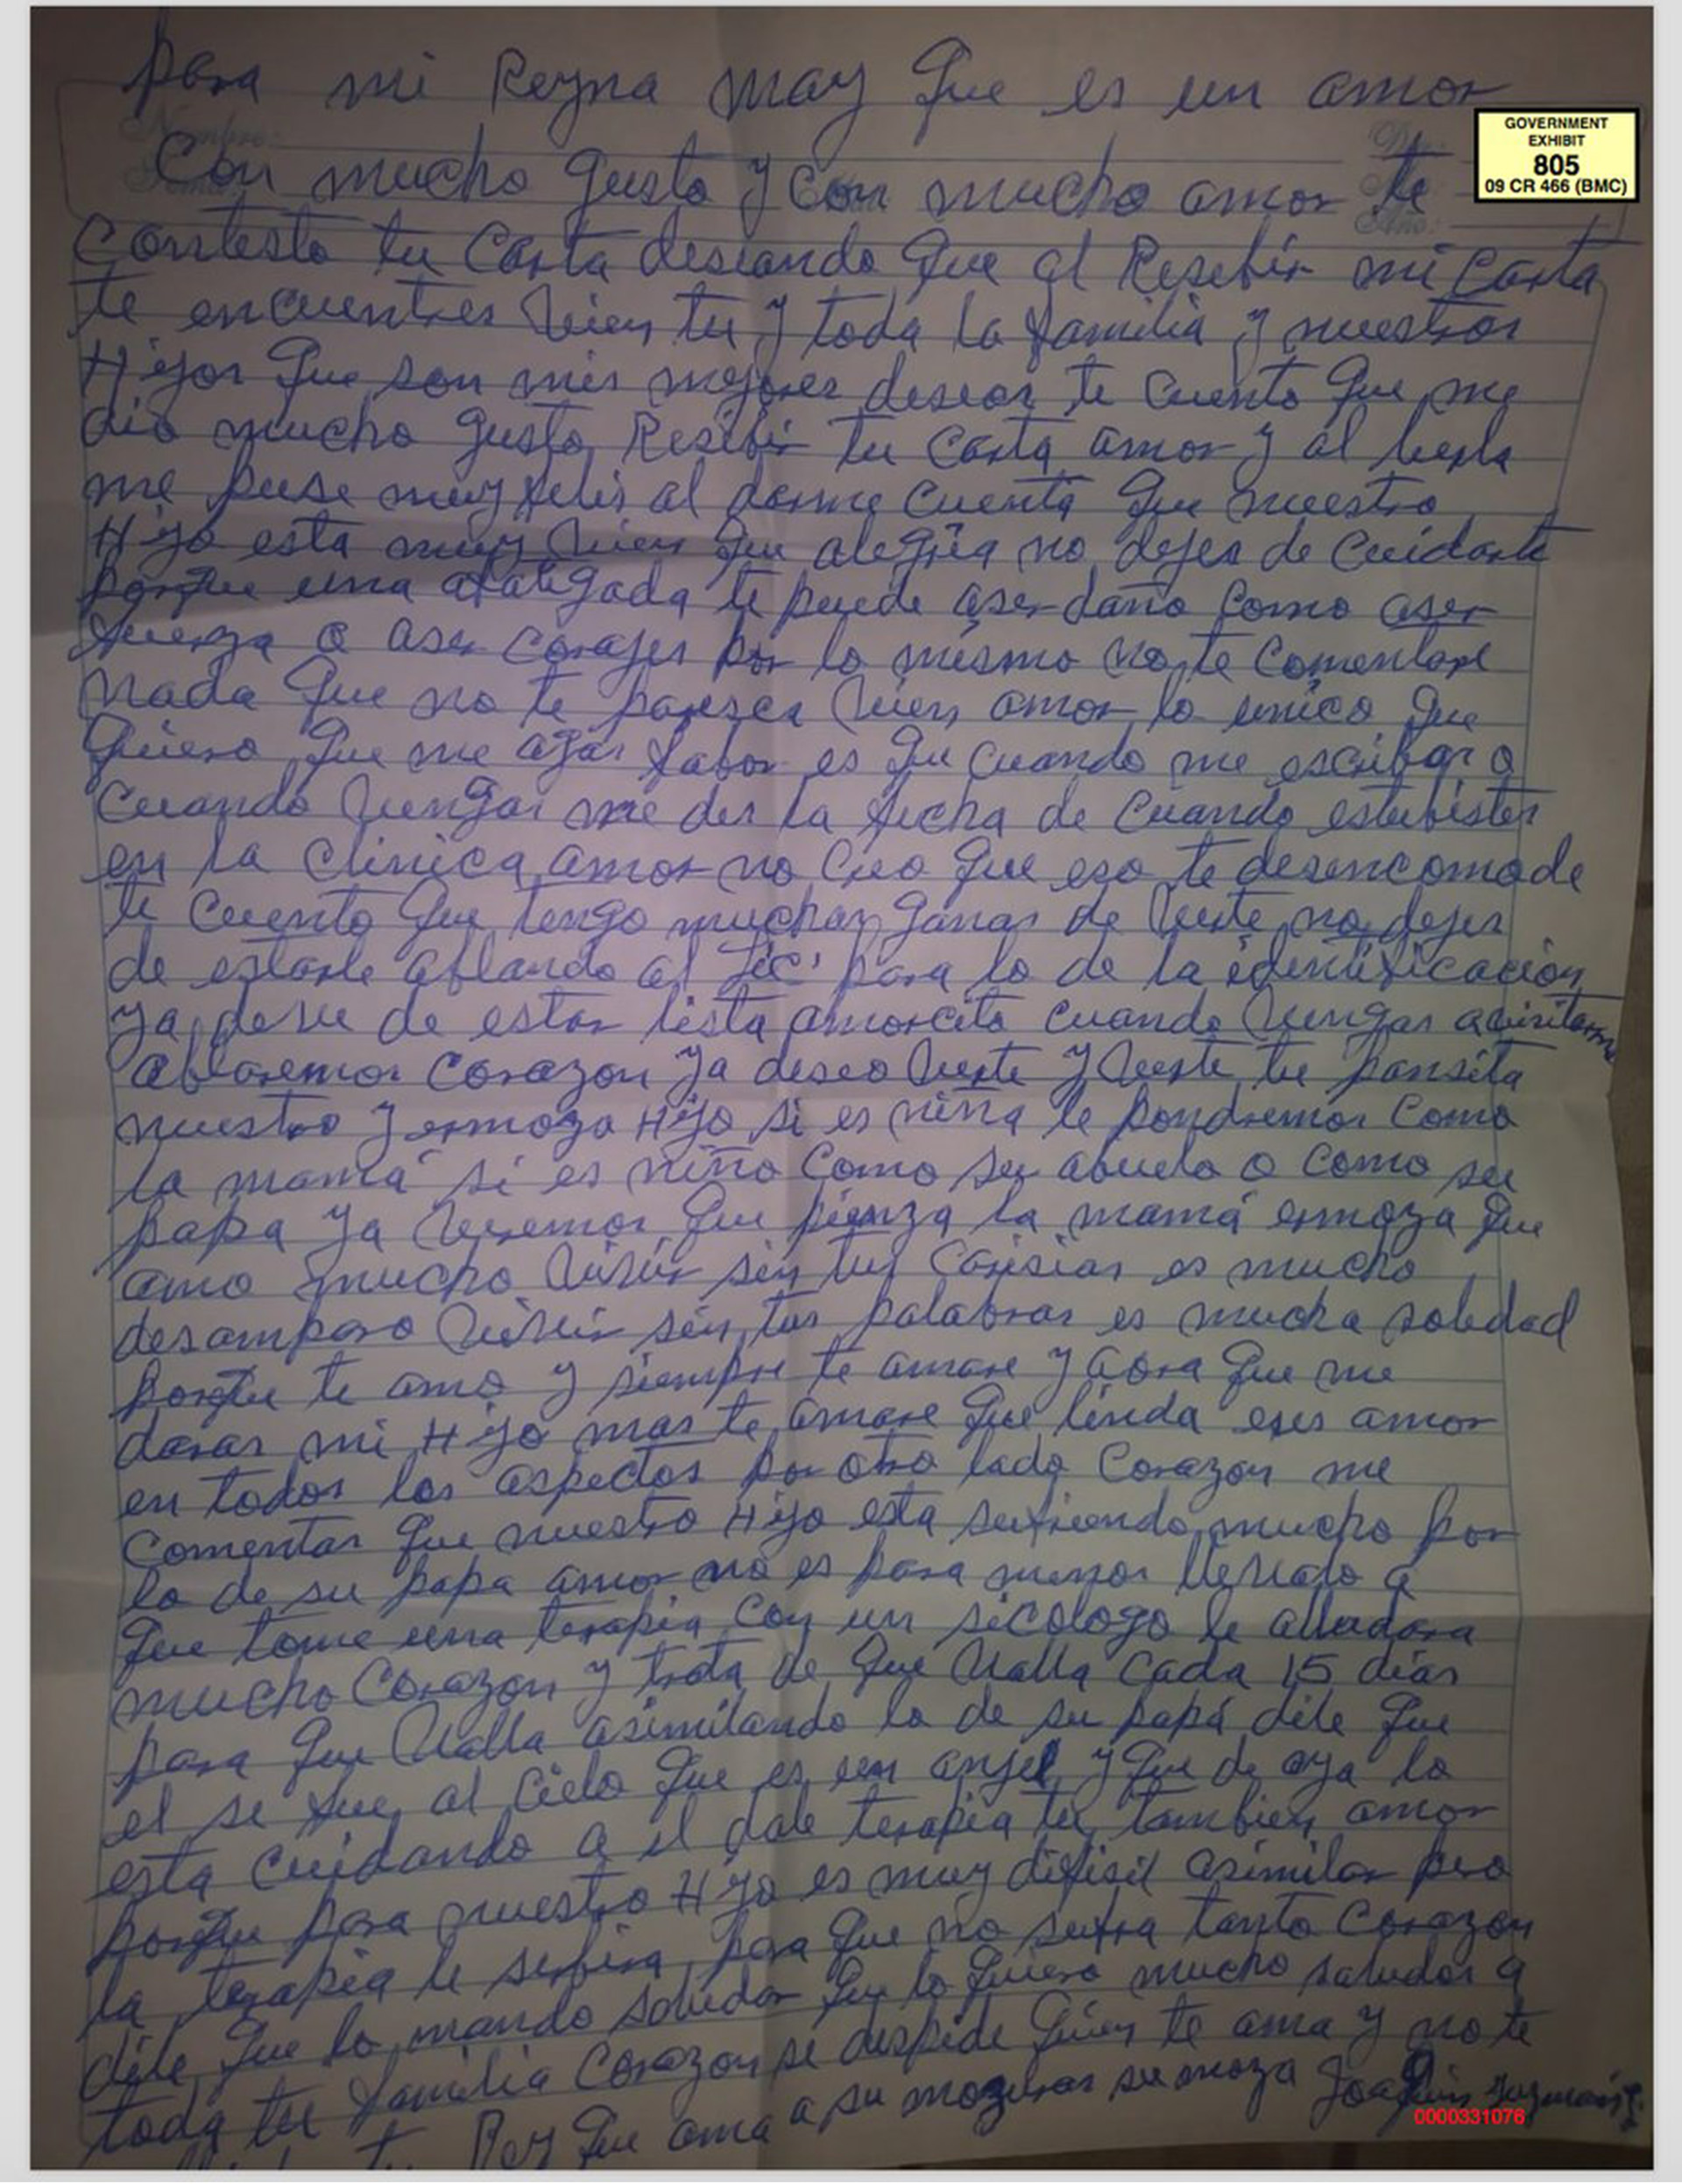 para mi Reyna may Que es un amor
GOVERNMENT
EXHIBIT
805
09 CR 466 (BMC)
Nombre:
Con mucho gusto y con mucho amor te
Año:
contesto tu carta deseando Que al Resebir mi carta
te encuentres vien tu y toda la familia y nuestros
Hijos Que son mis mejores deseos te cuento Que me
dio mucho gusto Resibir tu carta amor y al leerla
me puse muy felis al darme cuenta Que nuestro
Hijo esta muy vien Que alegria no dejes de cuidarte
porque una te puede aser daño como aser
fuerza o aser corajes por lo mismo no te comentare
nada Que no te paresca vien amor lo unico Que
Quiero Que me agas fabor es Que cuando me escribas o
cuando vengas me des la fecha de cuando estubistes
en la clinica amor no creo Que eso te desencomode
te cuento Que tengo muchas ganas de verte no dejes
de estarle ablando al Lic' para lo de la identificacion
ya deve de estar lista amorcito cuando vengas a
ablaremos corazon ya deseo verte y verte tu pansita
nuestro y ermozo Hijo si es niña le pondremos como
la mamá si es niño como su abuelo o como su
papa ya veremos Que pienza la mamá ermoza Que
amo mucho vivir sin tus carisias es mucho
desamparo vivir sin tus palabras es mucha soledad
porque te amo y siempre te amare y aora Que me
daras mi Hijo mas te amare Que linda eres amor
en todos los aspectos por otro lado corazon me
comentas Que nuestro Hijo esta sufriendo mucho por
lo de su papa amor no es para menos llevalo a
Que tome una terapia con un sicologo le alludara
mucho corazon y trata de Que valla cada 15 dias
para Que valla asimilando lo de su papá dile Que
el se fue al cielo Que es un anjel y Que de aya lo
esta cuidando a el dale terapia tu tambien amor
porque para nuestro Hijo es muy difisil asimilar pero
la terapia le serbira para Que no sufra tanto corazon
dile Que lo mando saludar Que lo Quiero mucho saludos a
toda tu familia corazon se despide Quien te ama y no te
Rey Que ama a su Joaquin Guzman
0000331076